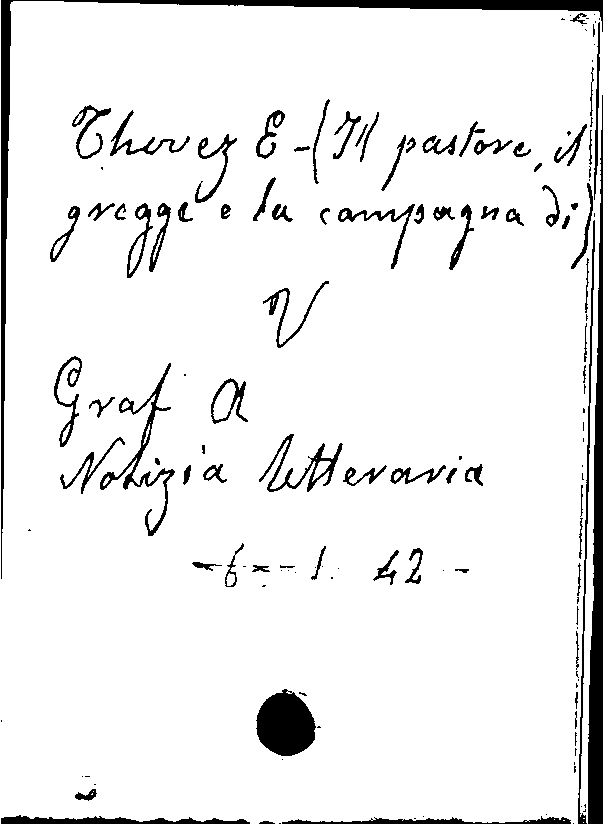 Thovez E - (Il pastore, il
gregge e la campagna di)
V
Graf A
Notizia letteraria
- 6 - 1. 42 -